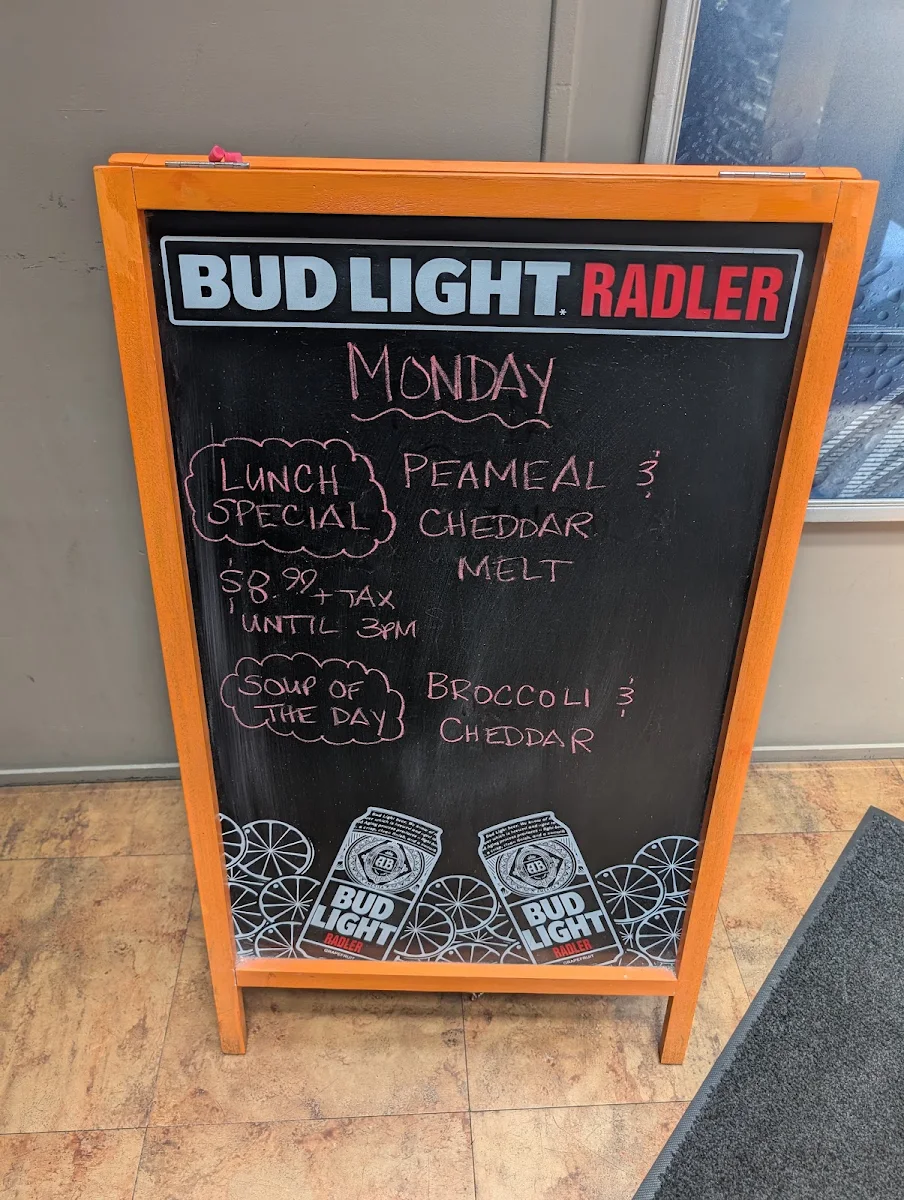 BUD LIGHT RADLER
MONDAY
LUNCH
SPECIAL
PEAMEAL &
CHEDDAR
MELT
$8.99 + TAX
UNTIL 3PM
SOUP OF
THE DAY
BROCCOLI &
CHEDDAR
BUD
LIGHT
RADLER
GRAPEFRUIT
BUD
LIGHT
RADLER
GRAPEFRUIT